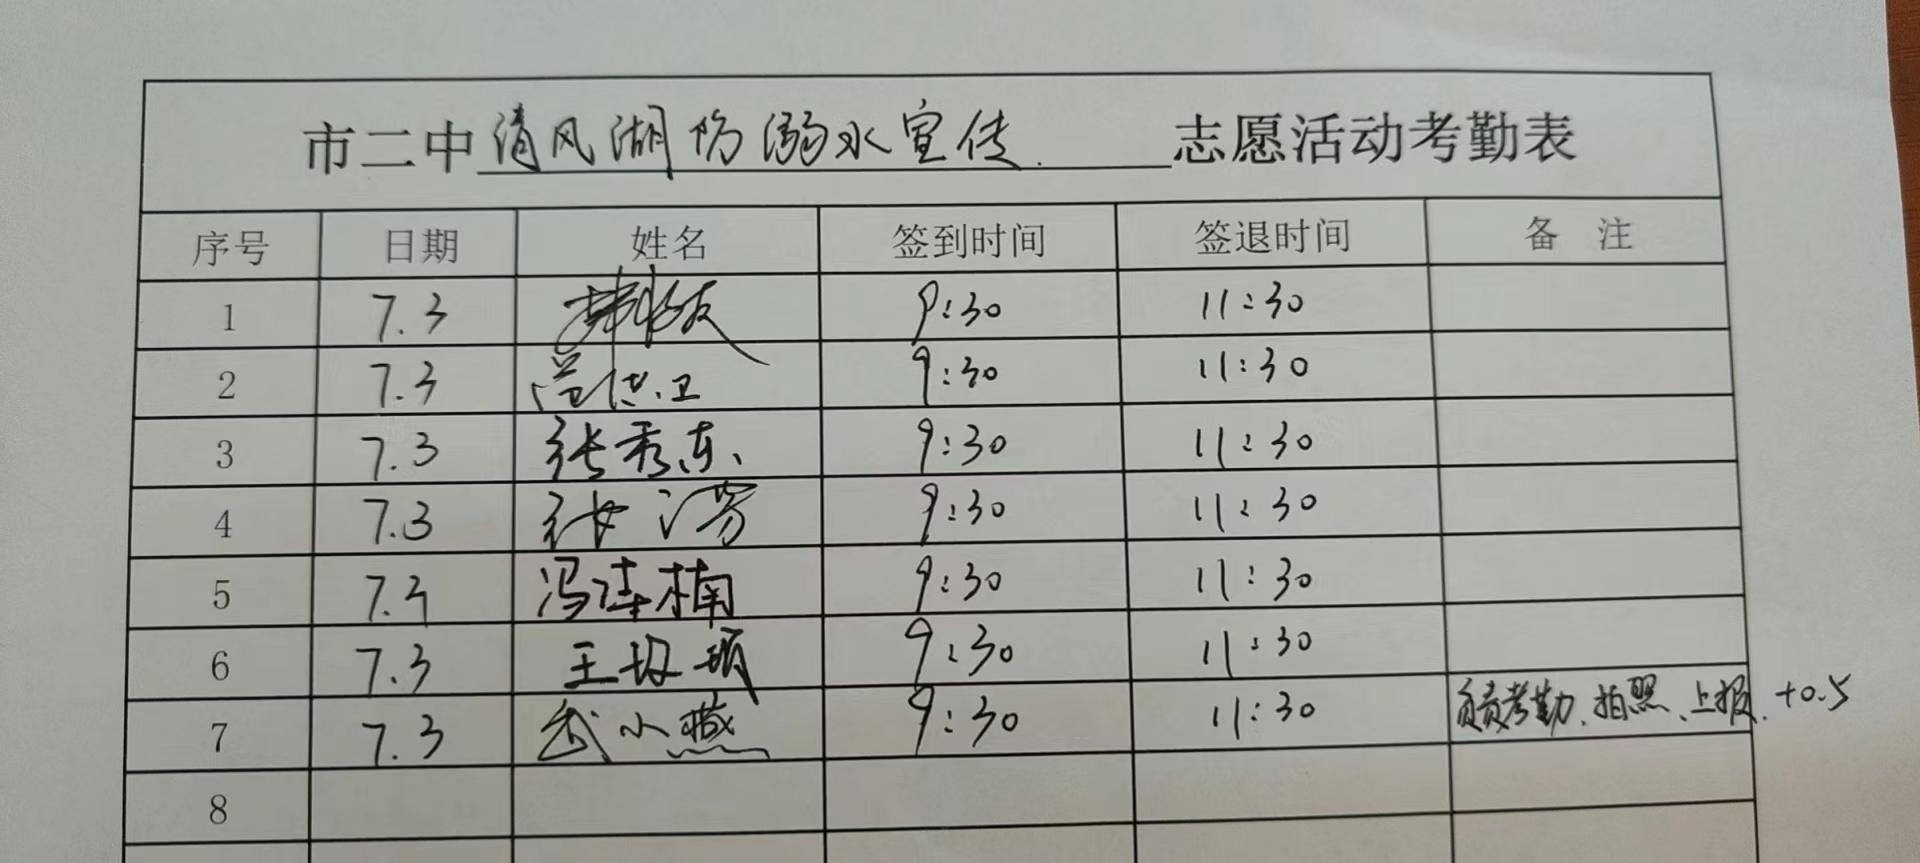 市二中清风湖防溺水宣传. 志愿活动考勤表
序号 日期 姓名 签到时间 签退时间 备 注
1 7.3 9:30 11:30
2 7.3 9:30 11:30
3 7.3 张秀东 9:30 11:30
4 7.3 张 9:30 11:30
5 7.3 冯 楠 9:30 11:30
6 7.3 王 9:30 11:30
7 7.3 武小燕 9:30 11:30 负责考勤、拍照、上报. +0.5
8